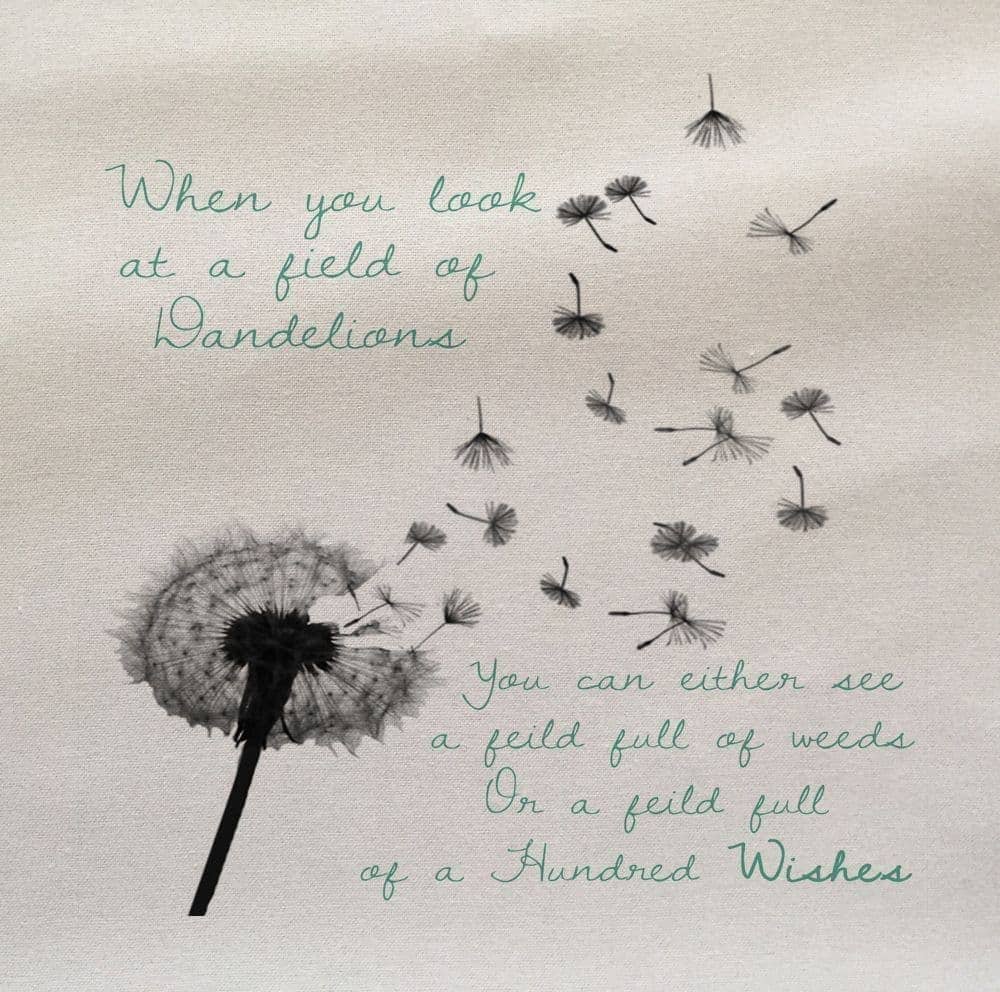 When you look
at a field of
Dandelions
You can either see
a feild full of weeds
Or a feild full
of a Hundred Wishes